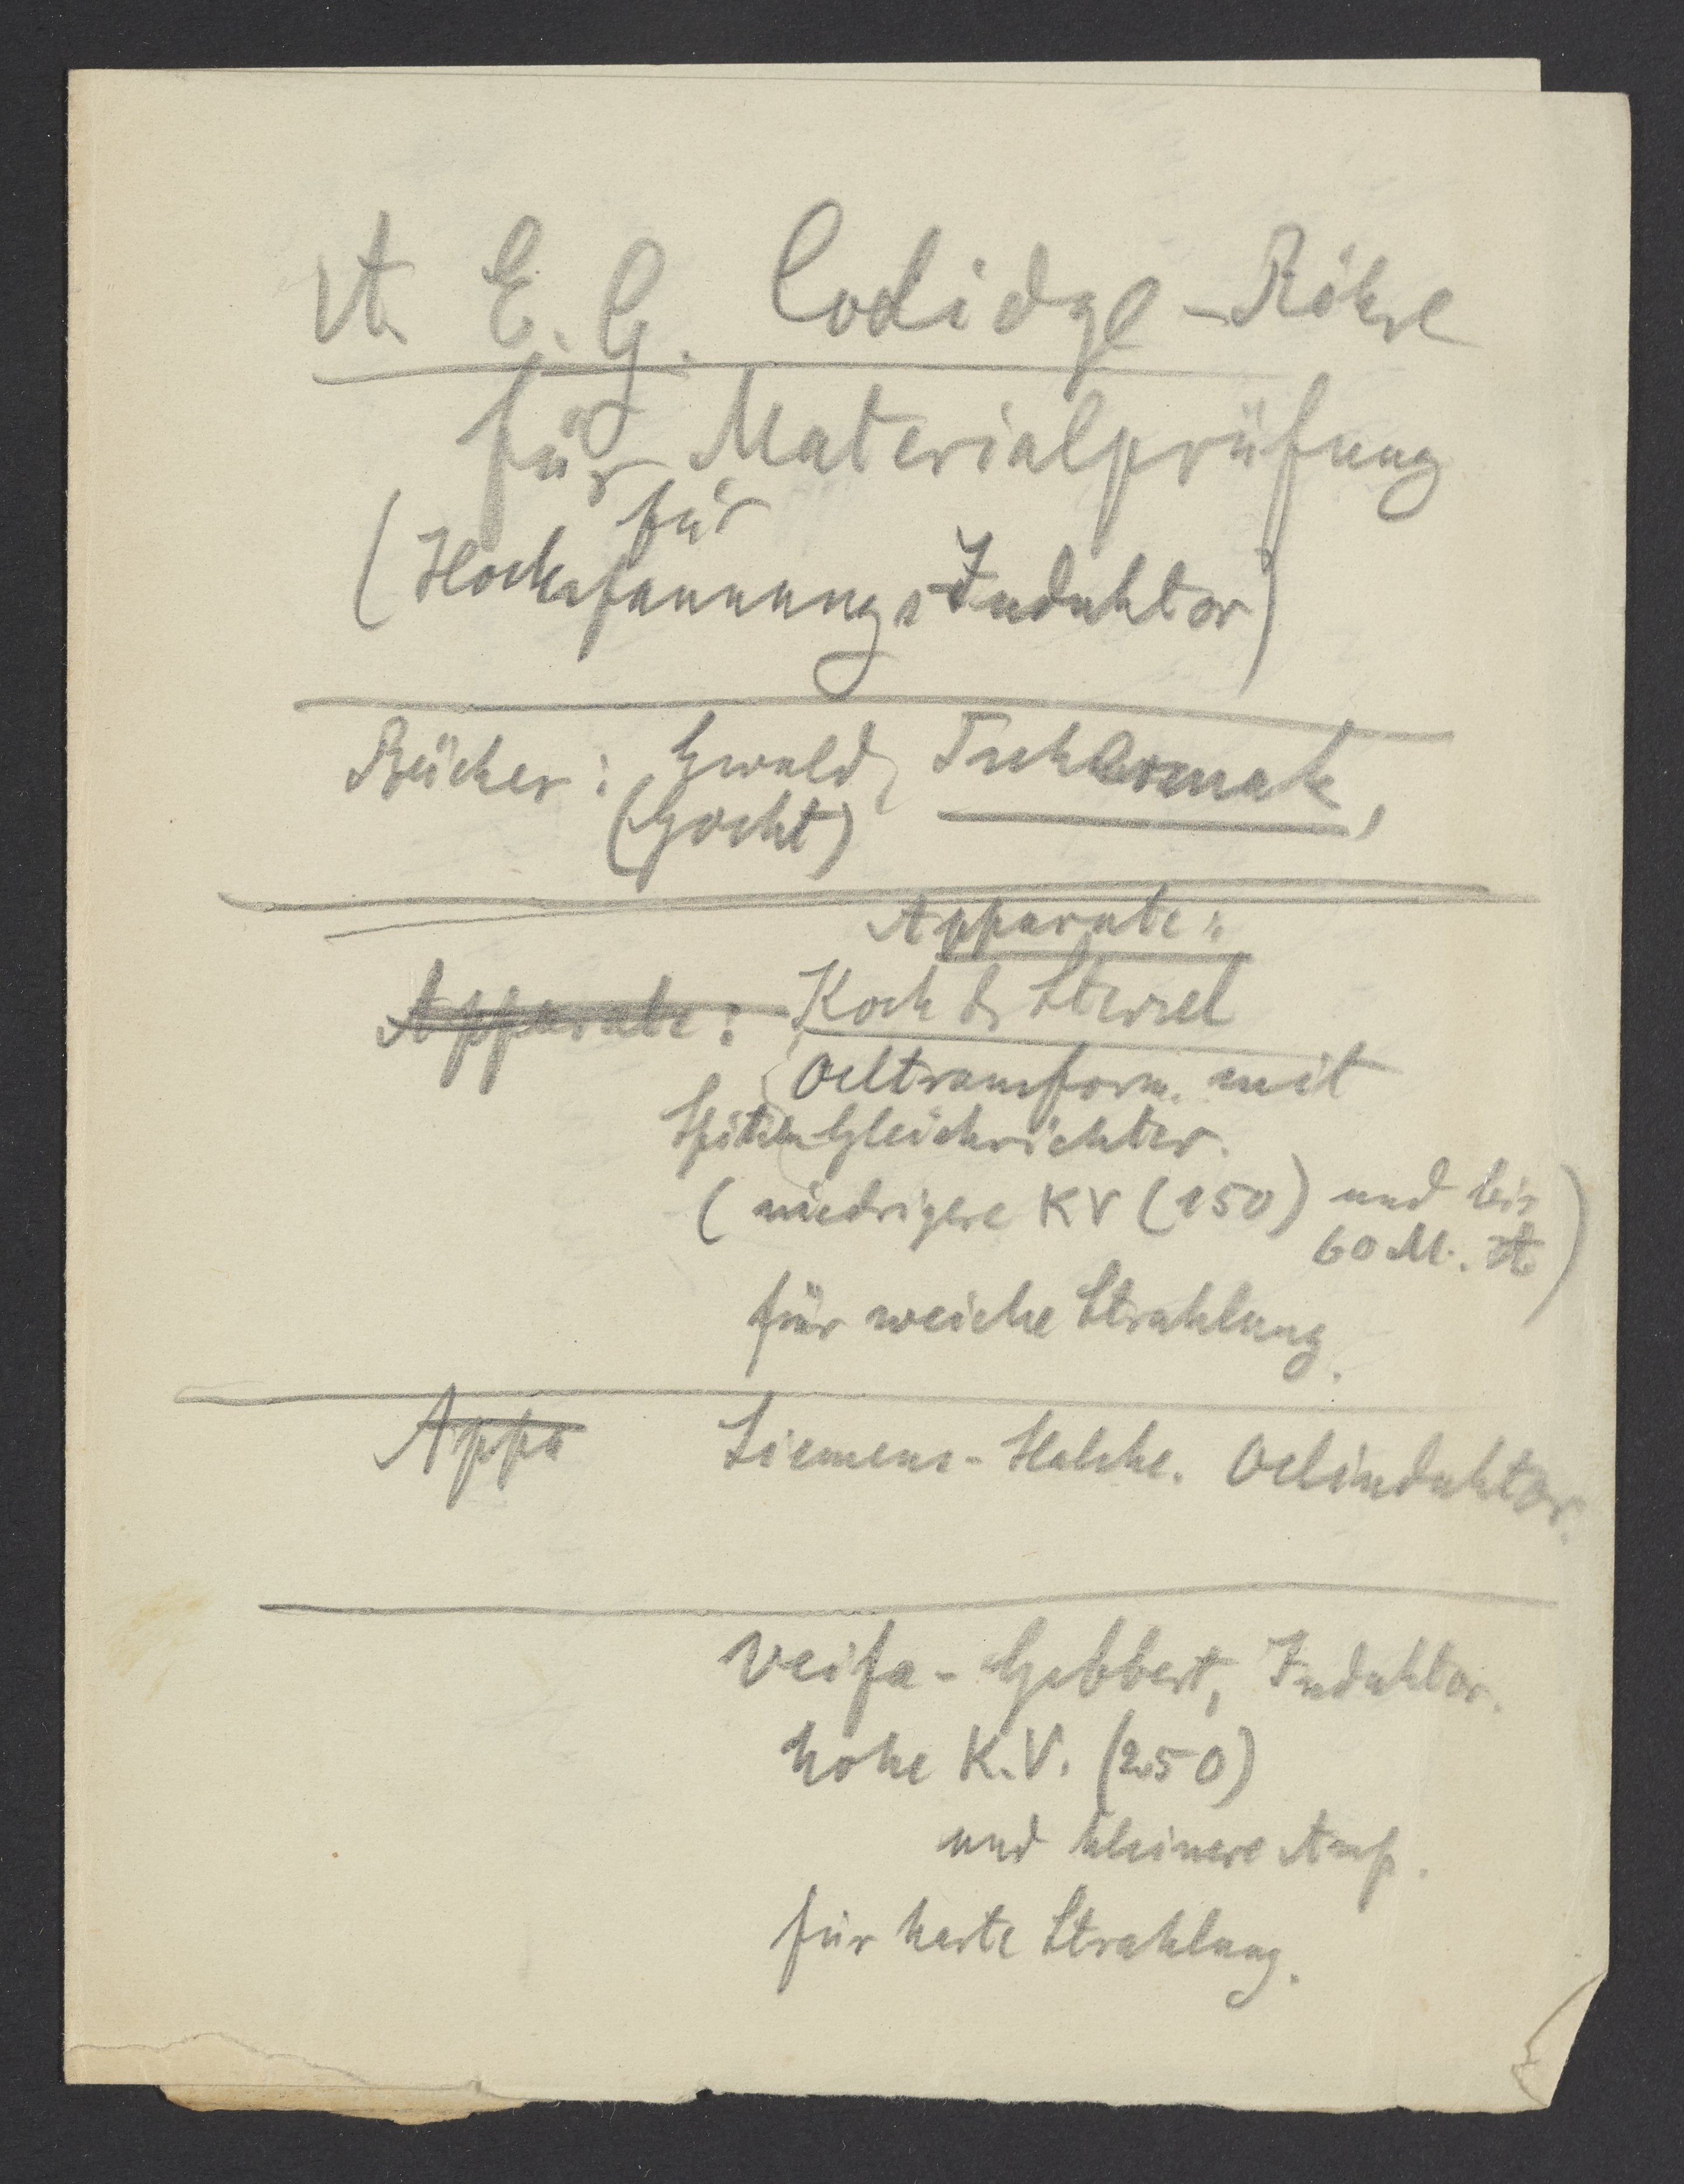 A. E. G. Colidge-Röhre
für Materialprüfung
für
(Hochspannungs-Induktor)
Bücher: Ewald, Tschermak,
(Gocht)
Apparate:
Apparate: Koch & Sterzel
Oeltransform. mit
Spitzen Gleichrichter.
(niedrigere KV (150) und bis
60 M. A)
für weiche Strahlung.
Appa Siemens-Halske. Oelinduktor.
Veifa-Gebbert, Induktor.
hohe K.V. (250)
und kleinere Amp.
für harte Strahlung.